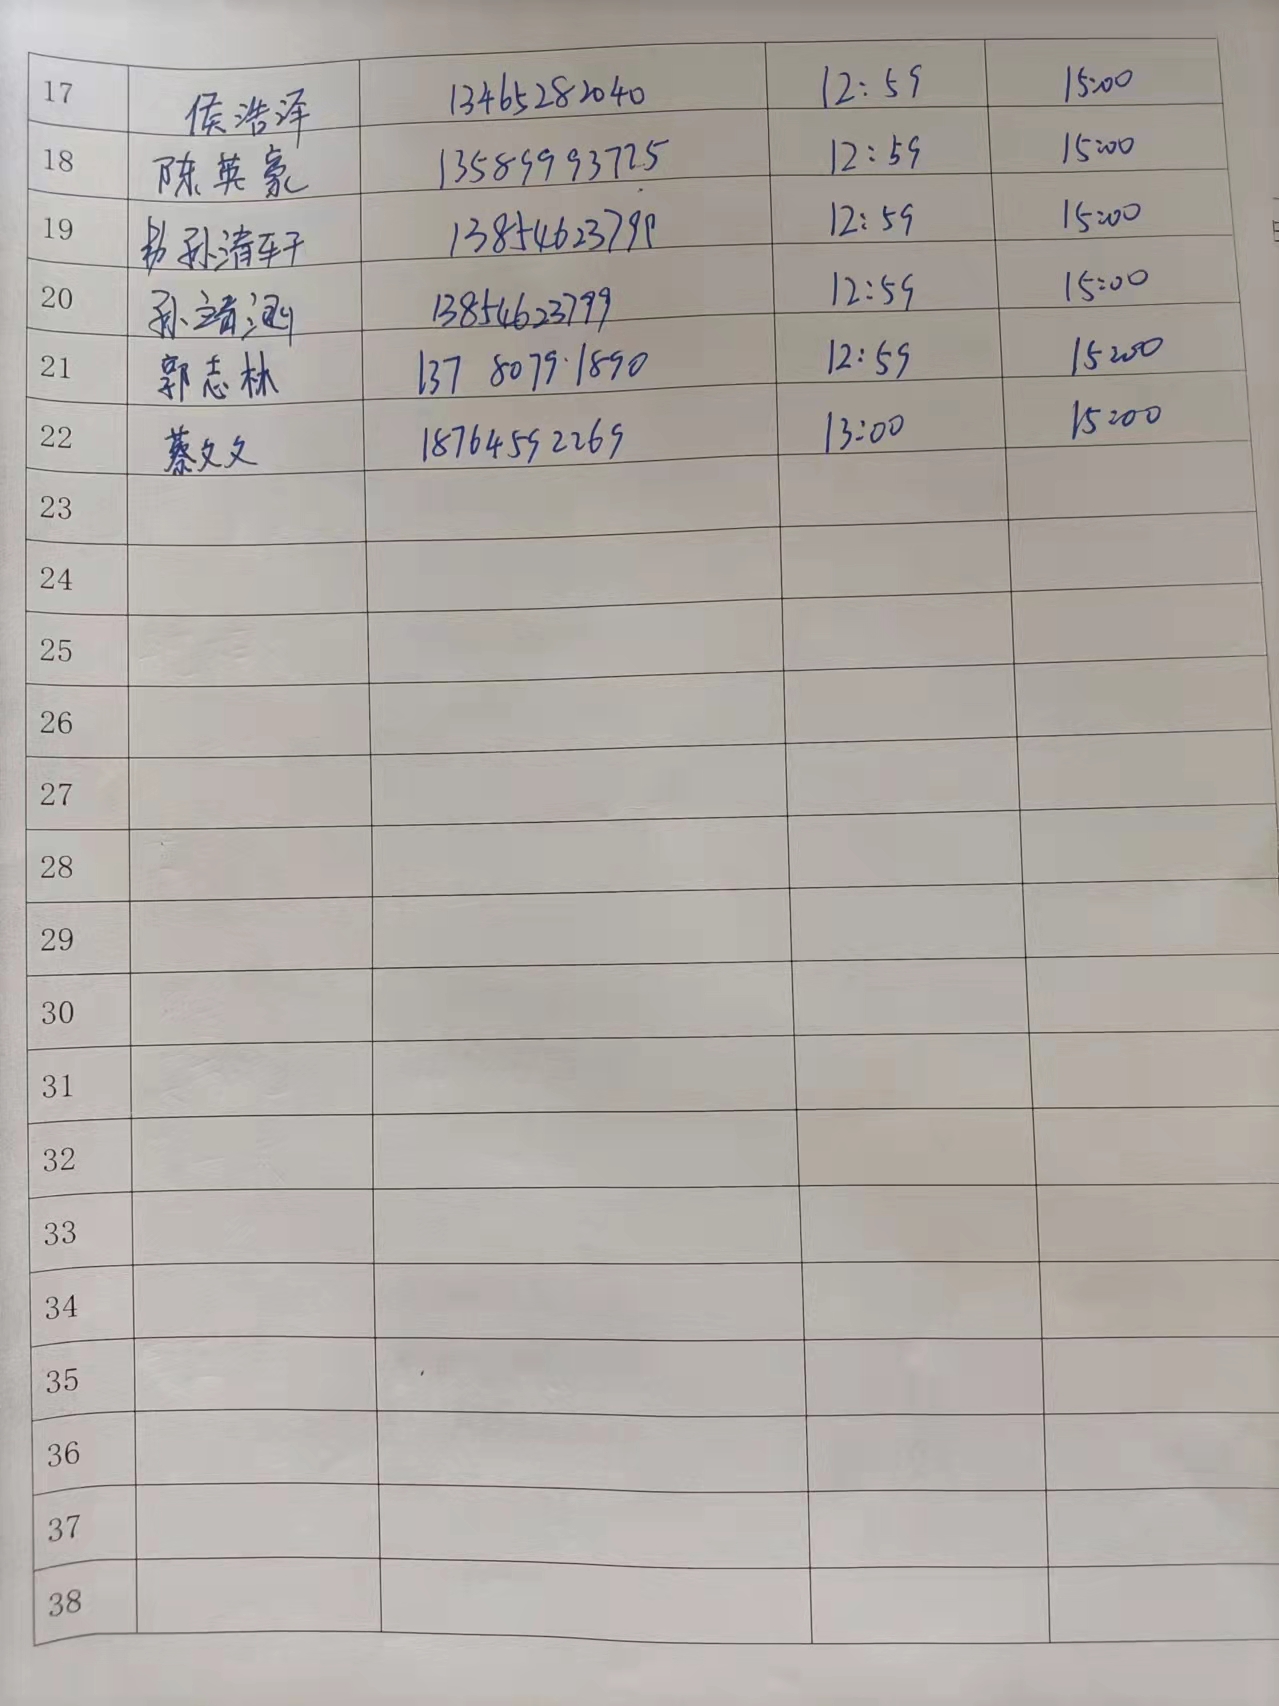 17 侯浩泽 13465282040 12:59 15:00
18 陈英豪 13589993725 12:59 15:00
19 孙清轩 13854623799 12:59 15:00
20 孙靖涵 13854623799 12:59 15:00
21 郭志林 137 8079·1890 12:59 15:00
22 蔡文文 18764592269 13:00 15:00
23
24
25
26
27
28
29
30
31
32
33
34
35
36
37
38